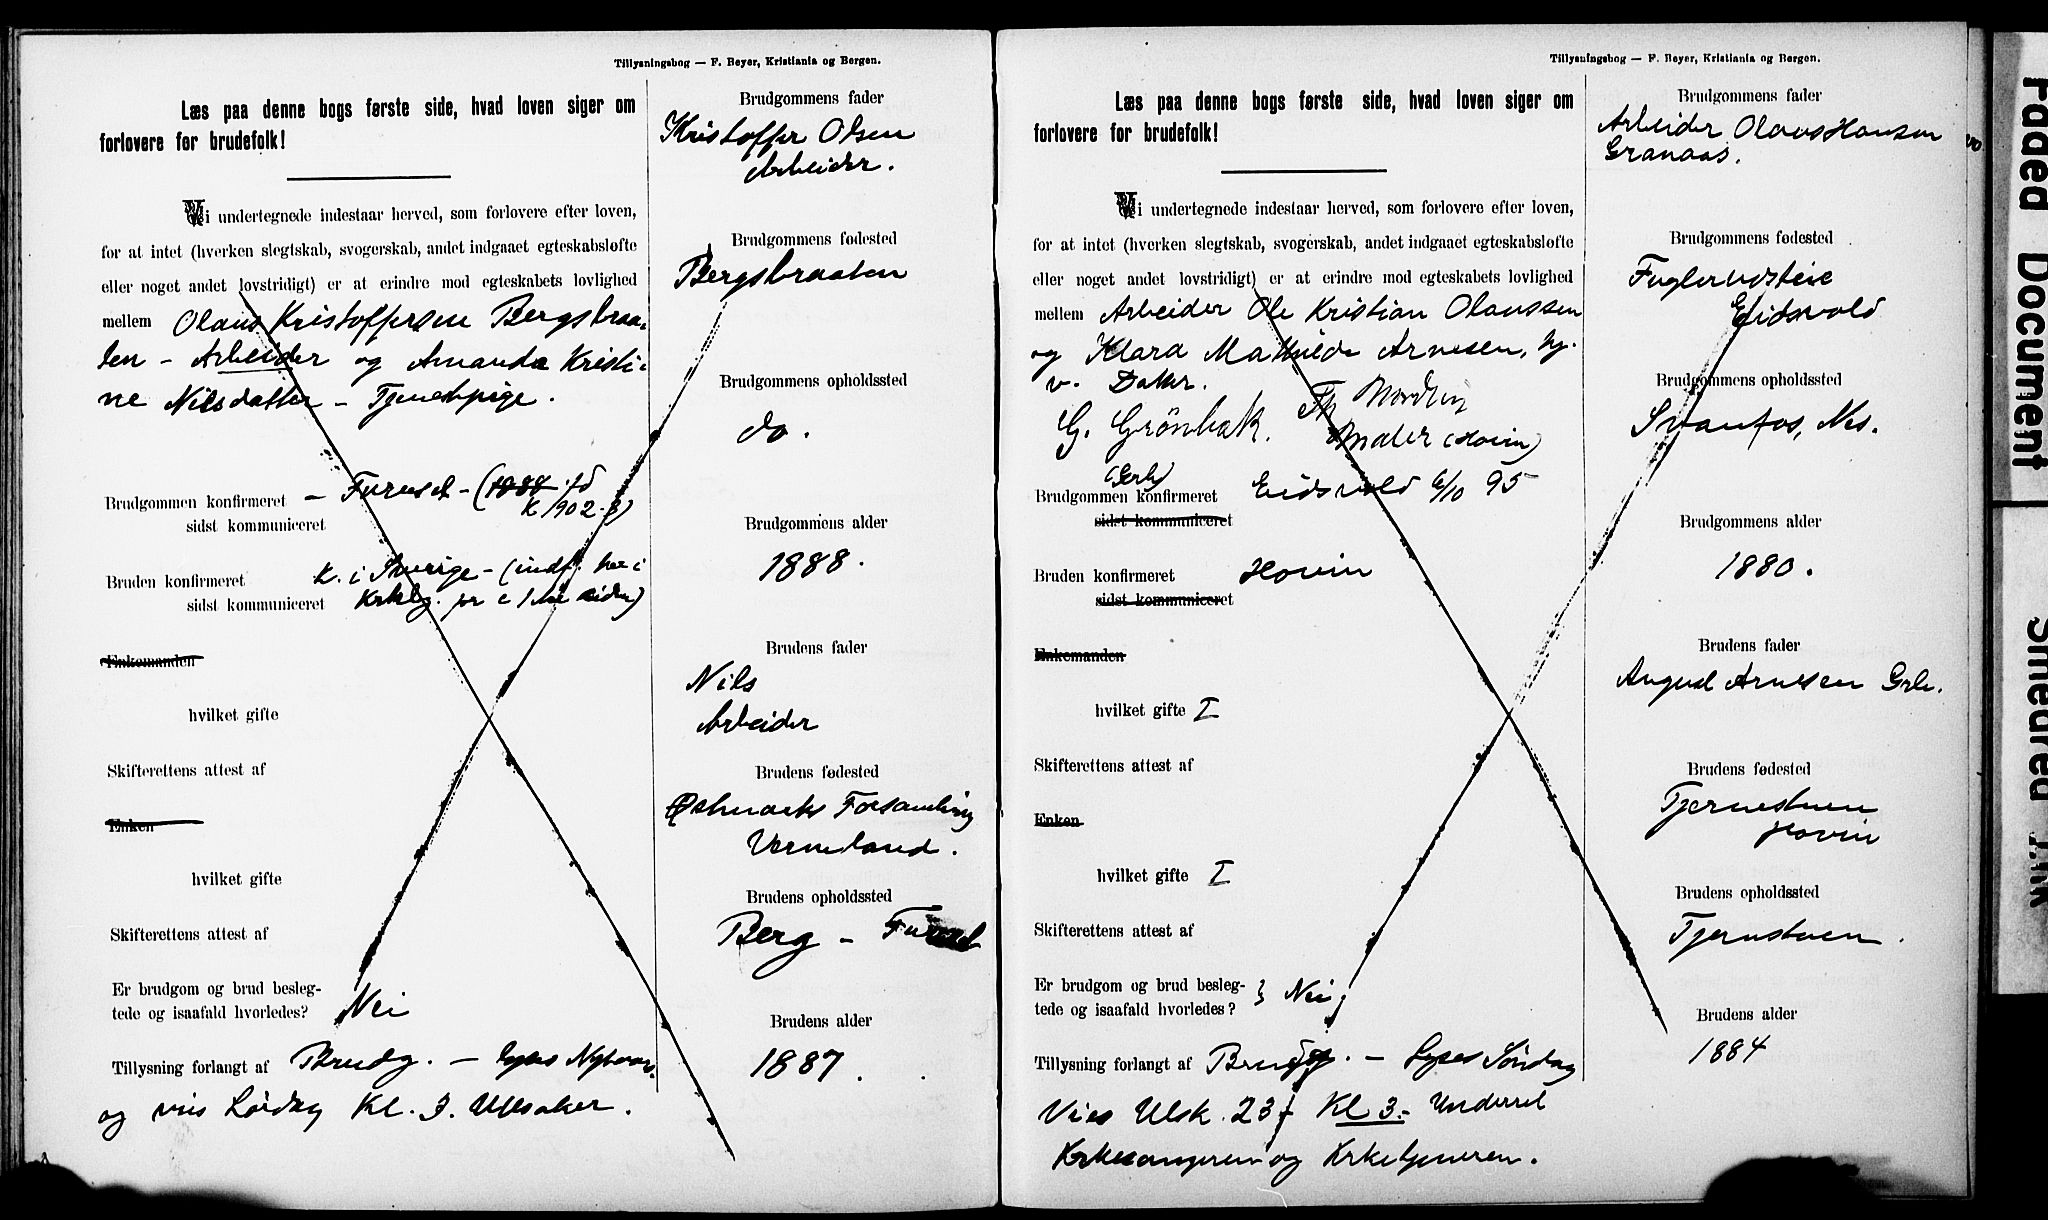 Tillysningsbog — F. Beyer, Kristiania og Bergen.
Læs paa denne bogs første side, hvad loven siger om
forlovere for brudefolk!
Vi undertegnede indestaar herved, som forlovere efter loven,
for at intet (hverken slegtskab, svogerskab, andet indgaaet egteskabsløfte
eller noget andet lovstridigt) er at erindre mod egteskabets lovlighed
mellem Olaus Kristoffersen Bergsbraa-
ten - Arbeider og Amanda Kristi-
ne Nilsdatter - Tjenestpige.
Brudgommen konfirmeret - Furuset - (1888 fd
sidst kommuniceret K 1902
Bruden konfirmeret K. i Sverige - (indf. her i
sidst kommuniceret
Enkemanden
hvilket gifte
Skifterettens attest af
Enken
hvilket gifte
Skifterettens attest af
Er brudgom og brud besleg-
tede og isaafald hvorledes? Nei
Tillysning forlangt af Brudg. - lyses Nytaar
og vies Lördag Kl. 3. Ullsaker.
Brudgommens fader
Kristoffer Olsen
Arbeider.
Brudgommens fødested
Bergsbraaten
Brudgommens opholdssted
do.
Brudgommens alder
1888.
Brudens fader
Nils
Arbeider
Brudens fødested
Østmarks Forsamling
Vermland.
Brudens opholdssted
Berg - Furuset
Brudens alder
1887.
Tillysningsbog — F. Beyer, Kristiania og Bergen.
Læs paa denne bogs første side, hvad loven siger om
forlovere for brudefolk!
Vi undertegnede indestaar herved, som forlovere efter loven,
for at intet (hverken slegtskab, svogerskab, andet indgaaet egteskabsløfte
eller noget andet lovstridigt) er at erindre mod egteskabets lovlighed
mellem Arbeider Ole Kristian Olaussen
og Klara Mathilde Arnesen, hj.
v. Datter.
G. Grönbak. Th Nordlie
(Grb) Maler (Hovin)
Brudgommen konfirmeret Eidsvold 6/10 95
sidst kommuniceret
Bruden konfirmeret Hovin
sidst kommuniceret
Enkemanden
hvilket gifte I
Skifterettens attest af
Enken
hvilket gifte I
Skifterettens attest af
Er brudgom og brud besleg-
tede og isaafald hvorledes? } Nei
Tillysning forlangt af Brudg. - Lyses Søndag
Vies Ulsk. 23 Kl 3.- Underret
Kirkesangeren og Kirketjeneren.
Brudgommens fader
Arbeider Olaus Hansen
Granaas.
Brudgommens fødested
Eidsvold
Brudgommens opholdssted
Svanfos, Nes.
Brudgommens alder
1880.
Brudens fader
August Arnesen Grb.
Brudens fødested
Tjernstuen
Hovin
Brudens opholdssted
Tjernstuen.
Brudens alder
1884
Faded Document
Smeared Ink